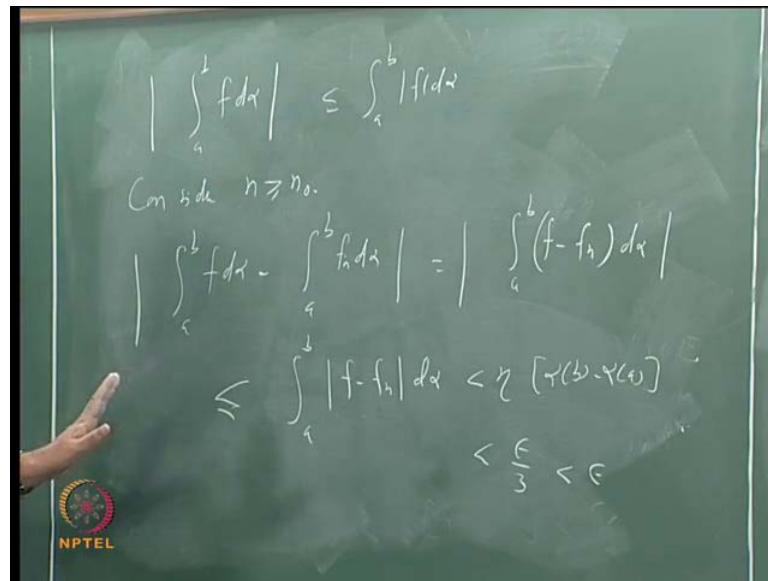 | ∫_a^b f dα | ≤ ∫_a^b |f| dα
Consider n ≥ n₀.
| ∫_a^b f dα - ∫_a^b fₙ dα | = | ∫_a^b (f - fₙ) dα |
≤ ∫_a^b |f - fₙ| dα < η [α(b) - α(a)]
< ϵ/3 < ϵ
NPTEL